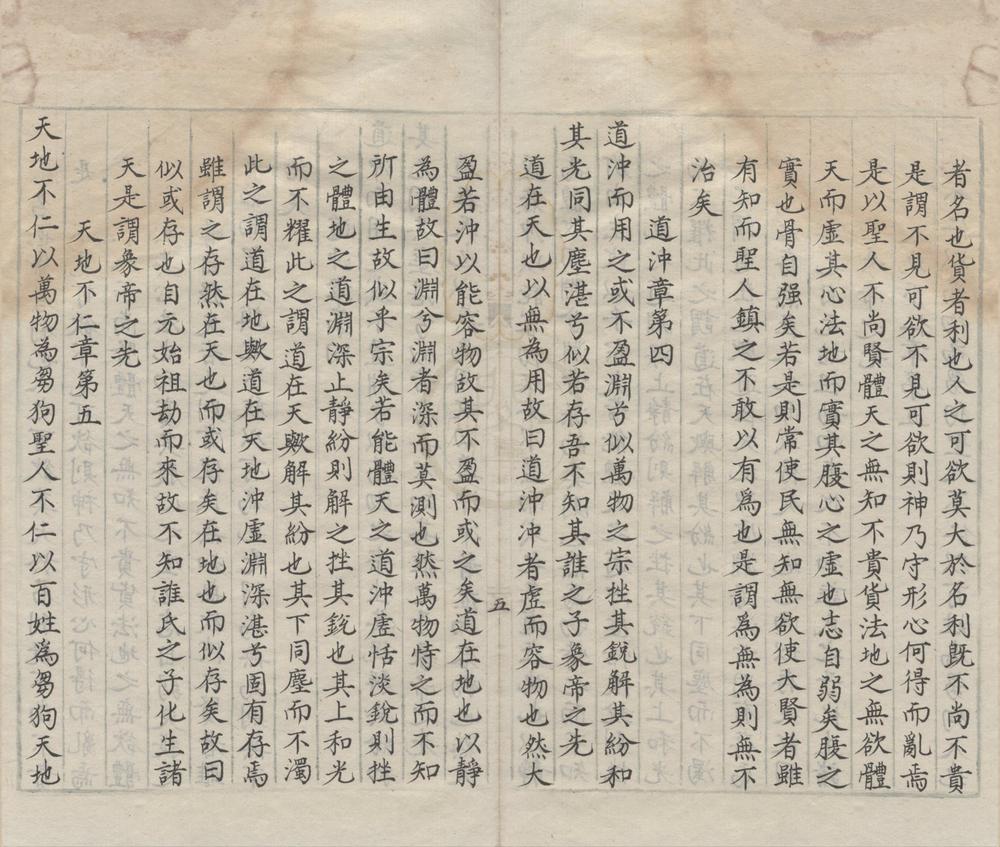 者名也貨者利也人之可欲莫大於名利既不尚不貴
是謂不見可欲不見可欲則神乃守形心何得而亂焉
是以聖人不尚賢體天之無知不貴貨法地之無欲體
天而虛其心法地而實其腹心之虛也志自弱矣腹之
實也骨自强矣若是則常使民無知無欲使大賢者雖
有知而聖人鎮之不敢以有為也是謂為無為則無不
治矣
道沖章第四
道沖而用之或不盈淵兮似萬物之宗挫其銳解其紛和
其光同其塵湛兮似若存吾不知其誰之子象帝之先
道在天也以無為用故曰道沖沖者虛而容物也然大
五
盈若沖以能容物故其不盈而或之矣道在地也以靜
為體故曰淵兮淵者深而莫測也然萬物恃之而不知
所由生故似乎宗矣若能體天之道沖虛恬淡銳則挫
之體地之道淵深止靜紛則解之挫其銳也其上和光
而不耀此之謂道在天歟解其紛也其下同塵而不濁
此之謂道在地歟道在天地沖虛淵深湛兮固有存焉
雖謂之存然在天也而或存矣在地也而似存矣故曰
似或存也自元始祖劫而來故不知誰氏之子化生諸
天是謂象帝之先
天地不仁章第五
天地不仁以萬物為芻狗聖人不仁以百姓為芻狗天地